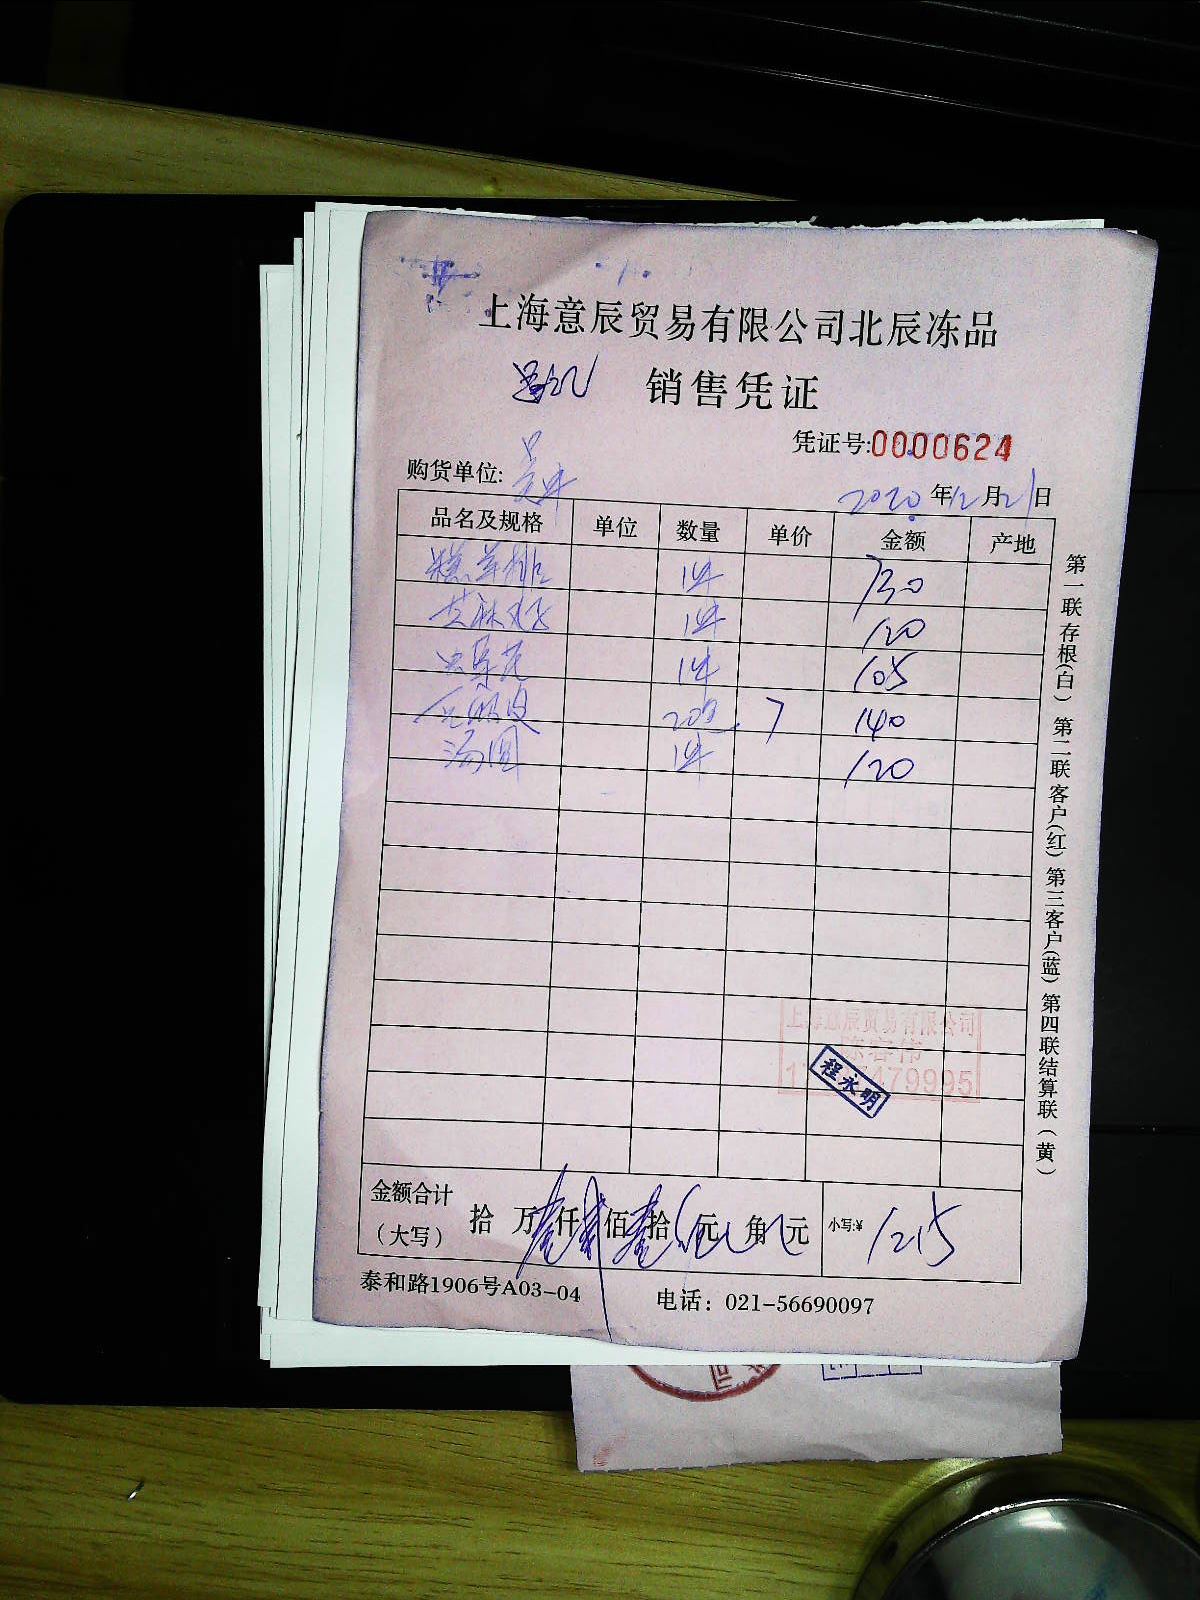 上海意辰贸易有限公司北辰冻品
销售凭证
凭证号:0000624
购货单位:
2020年12月21日
品名及规格 单位 数量 单价 金额 产地
羊排 1件 730
芝麻 1件 120
1件 105
20包 7 140
汤圆 1件 120
上海意辰贸易有限公司
479995
程永明
金额合计（大写） 拾 万壹仟贰佰壹拾伍元 角 元 小写:¥ 1215
泰和路1906号A03-04 电话：021-56690097
第一联存根(白) 第二联客户(红) 第三客户(蓝) 第四联结算联(黄)